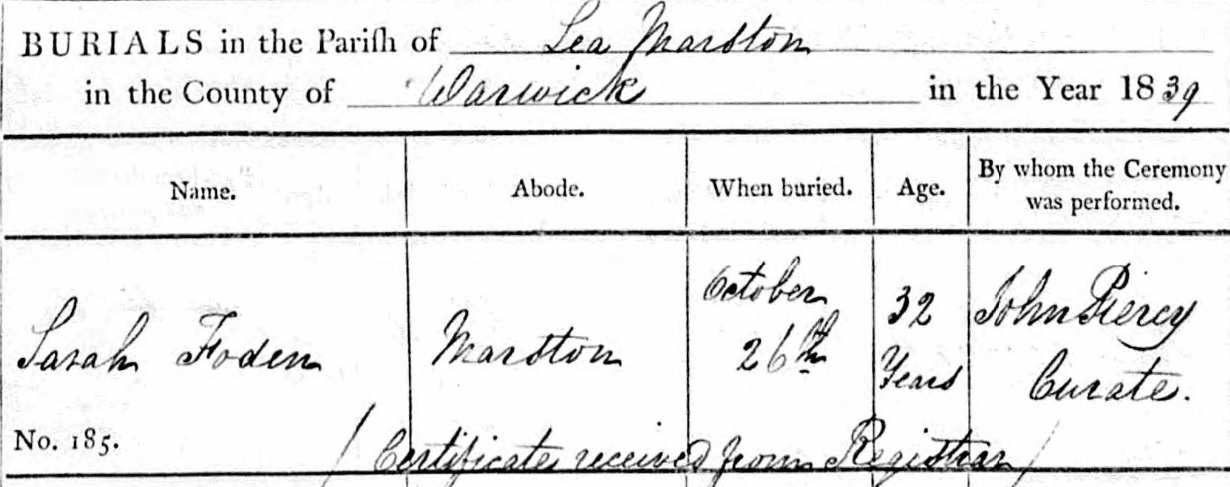 BURIALS in the Parish of Lea Marston
in the County of Warwick in the Year 1839
Name. Abode. When buried. Age. By whom the Ceremony was performed.
Sarah Foden Marston October 26th 32 Years John Piercy Curate.
No. 185. (Certificate received from Registrar)